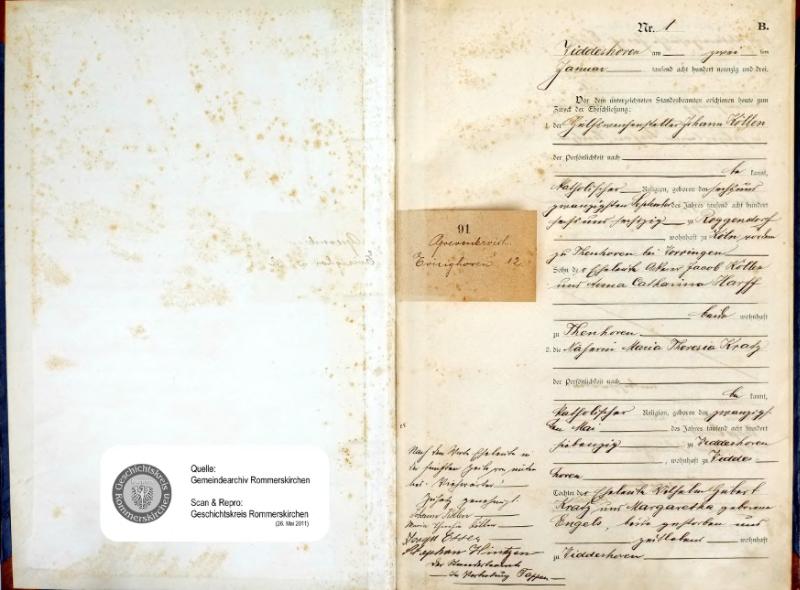 Nr. 1 B.
Widdeshoven am zwei ten
Januar tausend acht hundert neunzig und drei.
Vor dem unterzeichneten Standesbeamten erschienen heute zum
Zweck der Eheschließung:
1. der Hülfsweichensteller Johann Köllen
der Persönlichkeit nach
be kannt,
katholischer Religion, geboren den sechs und
zwanzigsten des Jahres tausend acht hundert
sechs und sechszig zu Roggendorf
, wohnhaft zu Köln
zu Thenhoven bei Worringen
Sohn der Eheleute Ackerer Jacob Köllen
und Anna Catharina Harff
beide wohnhaft
zu Thenhoven
2. die Näherin Maria Theresia Kratz
der Persönlichkeit nach
be kannt,
katholischer Religion, geboren den zwanzig
ten Mai des Jahres tausend acht hundert
siebenzig zu Widdeshoven
, wohnhaft zu Widdes-
hoven
Tochter der Eheleute Wilhelm Hubert
Kratz und Margaretha geborene
Engels, beide gestorben und
zeitlebens wohnhaft
zu Widdeshoven
91
Grevenbroich
12
Nach dem Worte Eheleute
in fünften Zeile von unten
Zusatz genehmigt
Johann Köllen
Maria Theresia Köllen
Joseph Esser
Stephan Hintzen
Der Standesbeamte
In Vertretung
Geschichtskreis
Rommerskirchen
Quelle:
Gemeindearchiv Rommerskirchen
Scan & Repro:
Geschichtskreis Rommerskirchen
(26. Mai 2011)